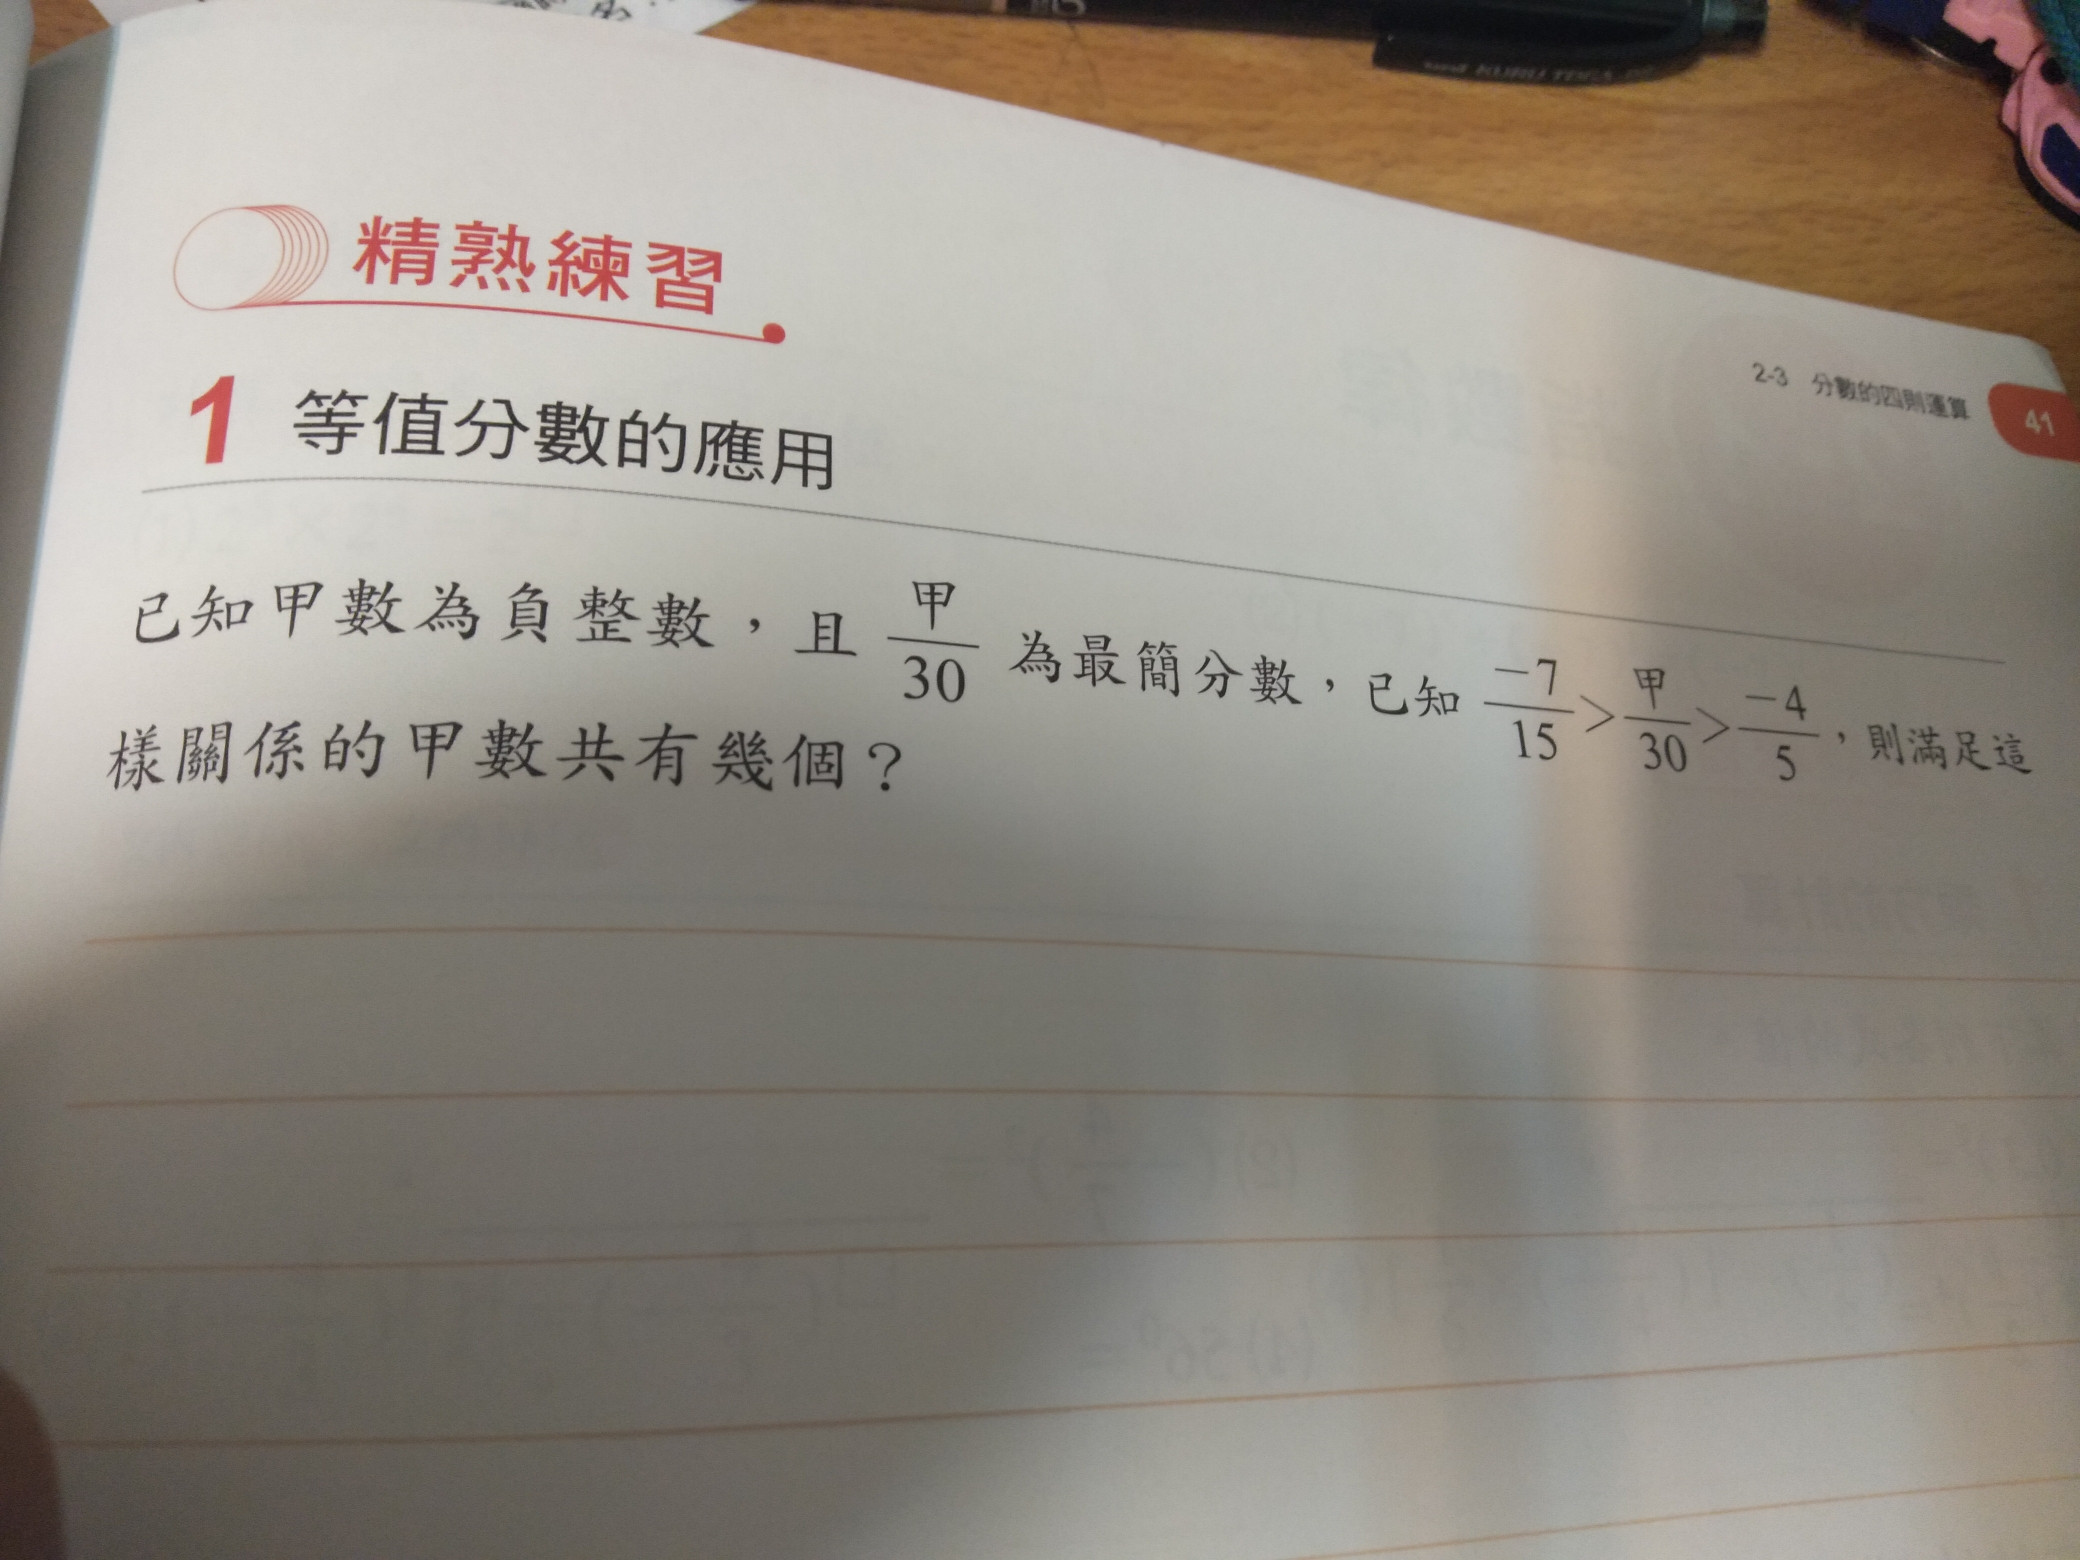 精熟練習
2-3 分數的四則運算 41
1 等值分數的應用
已知甲數為負整數，且 甲/30 為最簡分數，已知 -7/15 > 甲/30 > -4/5，則滿足這
樣關係的甲數共有幾個？